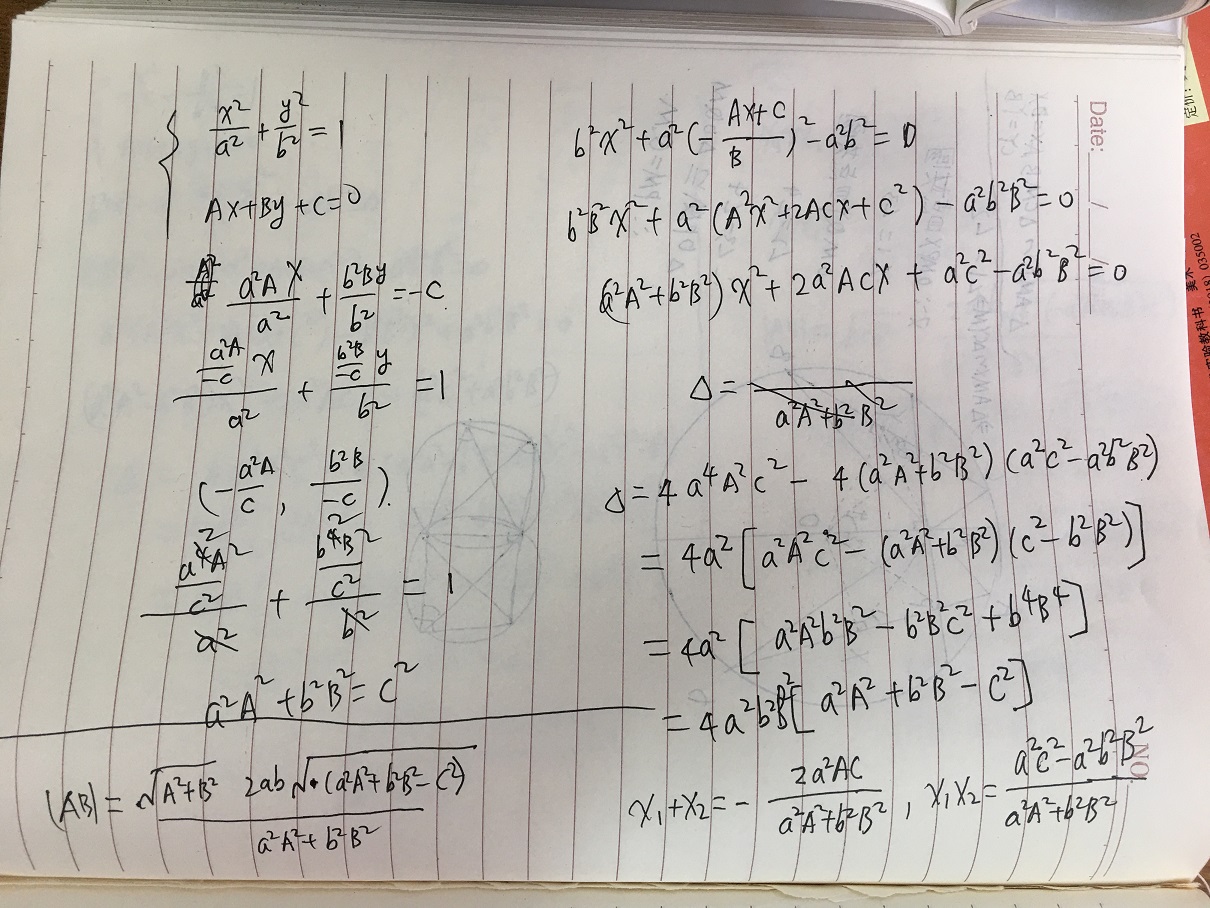 x²/a² + y²/b² = 1
Ax+By+C=0
a²Ax/a² + b²By/b² = -C
(a²A/-C)x/a² + (b²B/-C)y/b² = 1
(-a²A/C, b²B/-C).
(a²A²/C²) + (b²B²/C²) = 1
a²A²+b²B²=C²
|AB|= √(A²+B²) 2ab√(a²A²+b²B²-C²)/(a²A²+b²B²)
b²x²+a²(-(Ax+C)/B)²-a²b²=0
b²B²x²+a²(A²x²+2ACx+C²)-a²b²B²=0
(a²A²+b²B²)x²+2a²ACx+a²C²-a²b²B²=0
Δ= /(a²A²+b²B²)
Δ=4a⁴A²C²-4(a²A²+b²B²)(a²C²-a²b²B²)
=4a²[a²A²C²-(a²A²+b²B²)(C²-b²B²)]
=4a²[a²A²b²B²-b²B²C²+b⁴B⁴]
=4a²b²B²[a²A²+b²B²-C²]
x₁+x₂=-2a²AC/(a²A²+b²B²), x₁x₂=(a²C²-a²b²B²)/(a²A²+b²B²)
Date: / /
NO.
定价:
美术
035002